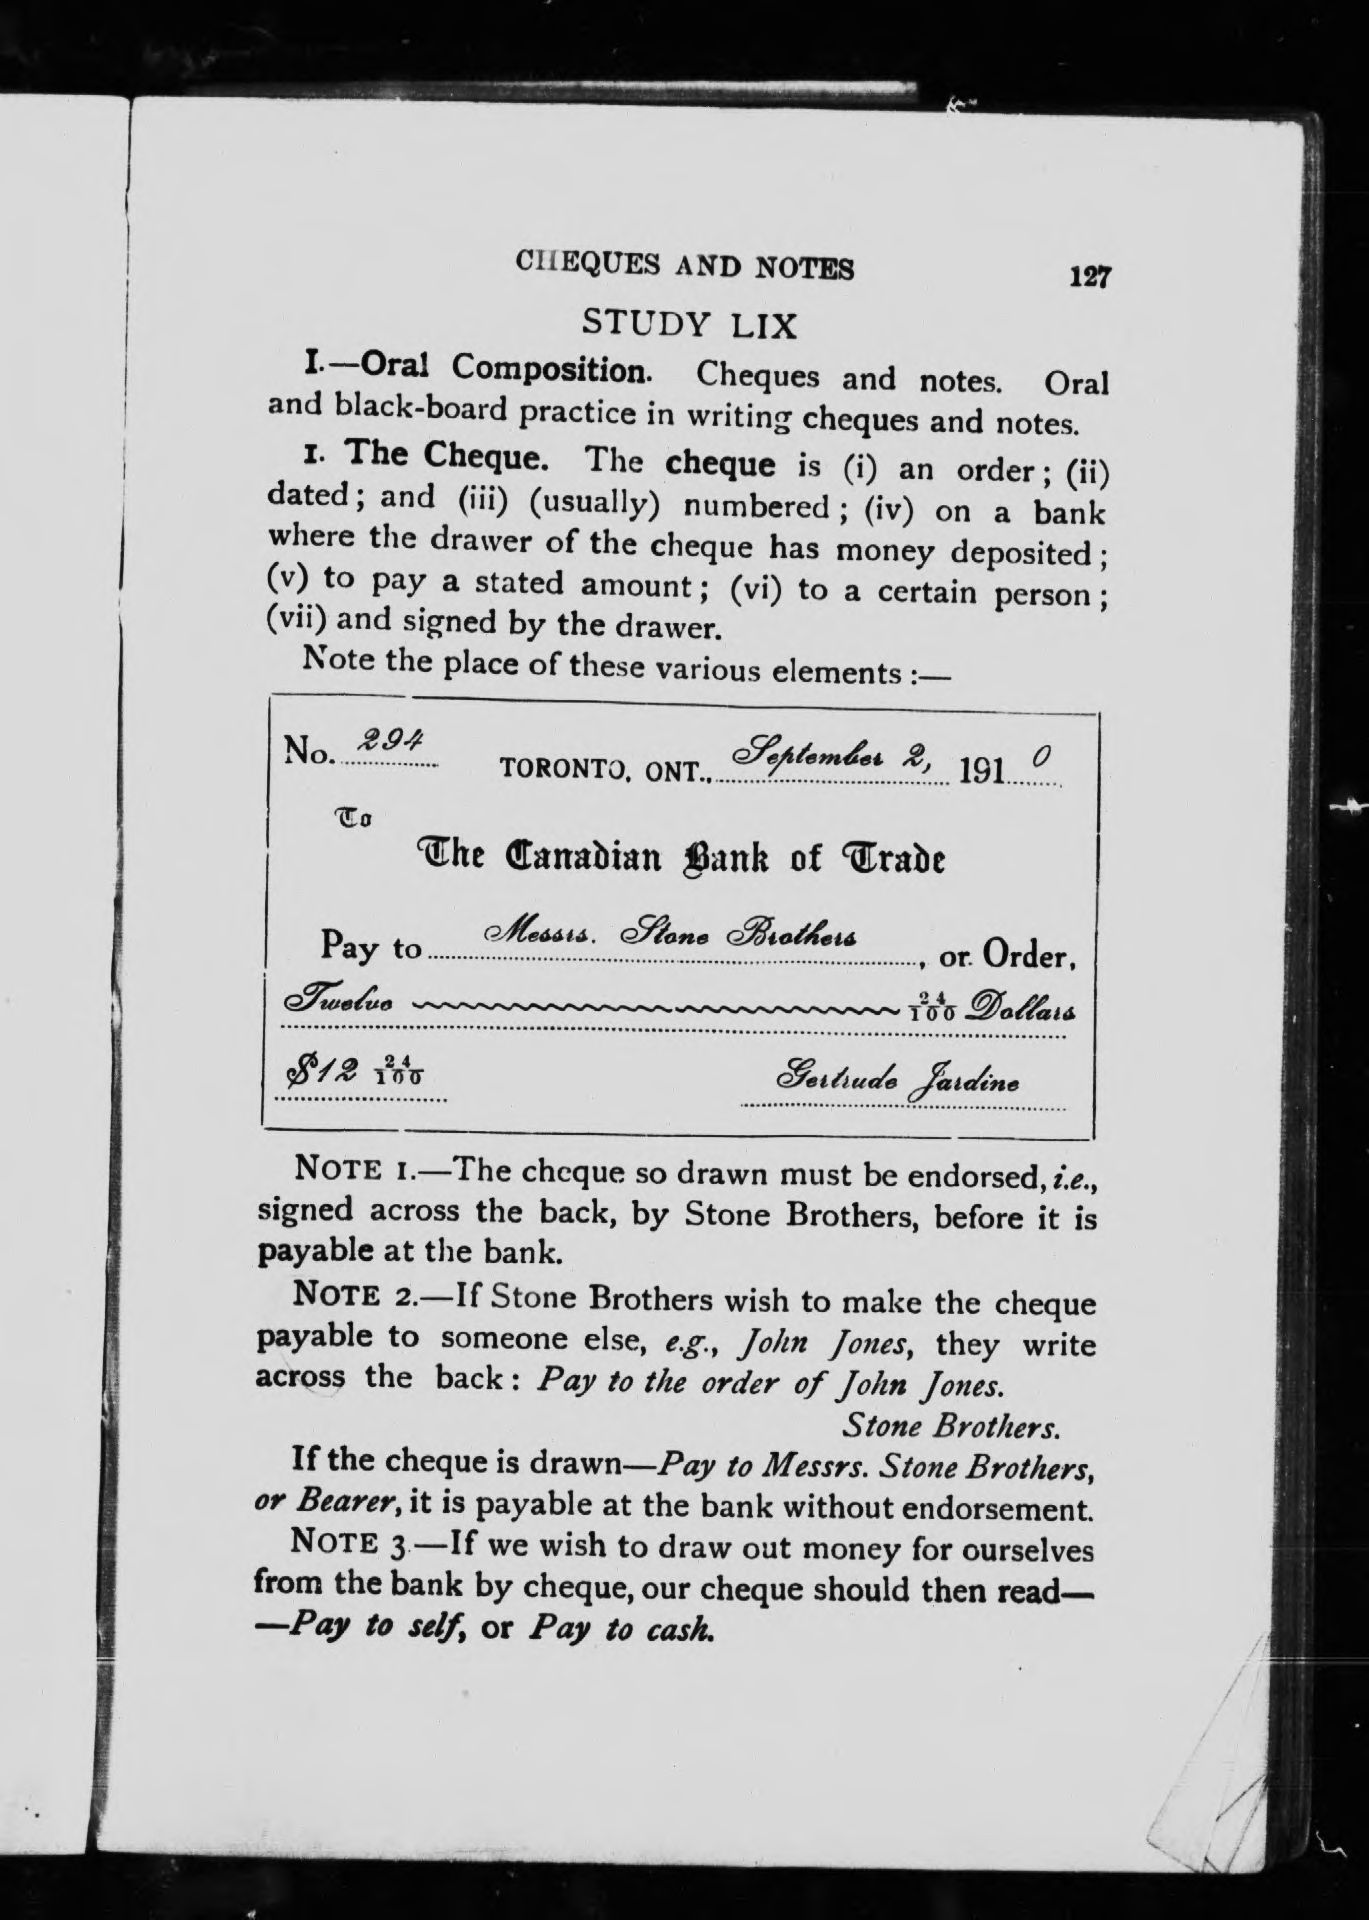 CHEQUES AND NOTES 127
STUDY LIX
I.—Oral Composition. Cheques and notes. Oral
and black-board practice in writing cheques and notes.
1. The Cheque. The cheque is (i) an order; (ii)
dated; and (iii) (usually) numbered; (iv) on a bank
where the drawer of the cheque has money deposited;
(v) to pay a stated amount; (vi) to a certain person;
(vii) and signed by the drawer.
Note the place of these various elements:—
No. 294 TORONTO, ONT., September 2, 1910
To
The Canadian Bank of Trade
Pay to Messrs. Stone Brothers, or Order,
Twelve 24/100 Dollars
$12 24/100 Gertrude Jardine
NOTE 1.—The cheque so drawn must be endorsed, i.e.,
signed across the back, by Stone Brothers, before it is
payable at the bank.
NOTE 2.—If Stone Brothers wish to make the cheque
payable to someone else, e.g., John Jones, they write
across the back: Pay to the order of John Jones.
Stone Brothers.
If the cheque is drawn—Pay to Messrs. Stone Brothers,
or Bearer, it is payable at the bank without endorsement.
NOTE 3.—If we wish to draw out money for ourselves
from the bank by cheque, our cheque should then read—
—Pay to self, or Pay to cash.